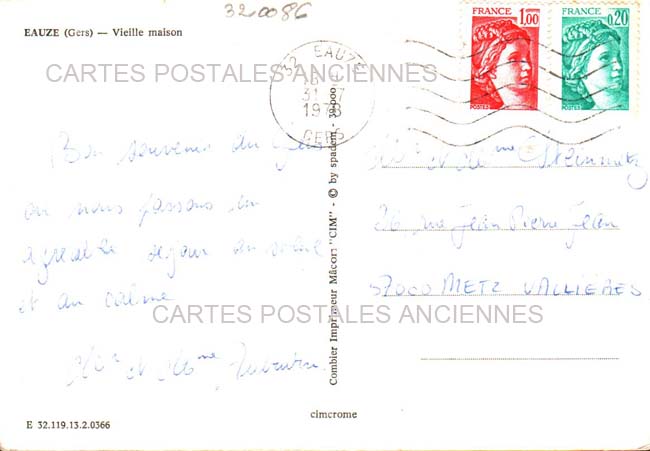 320086
EAUZE (Gers) — Vieille maison
FRANCE
1,00
POSTES
FRANCE
0,20
POSTES
32 EAUZE
31
1978
GERS
CARTES POSTALES ANCIENNES
Bon souvenir du Gers
où nous passons un
agréable séjour au soleil
et au calme
Mr et Mme
Combier Imprimeur Mâcon "CIM" - © by spadem - 39000
Mr et Mme Steinmetz
rue Jean Pierre Jean
57000 METZ VALLIÈRES
CARTES POSTALES ANCIENNES
cimcrome
E 32.119.13.2.0366